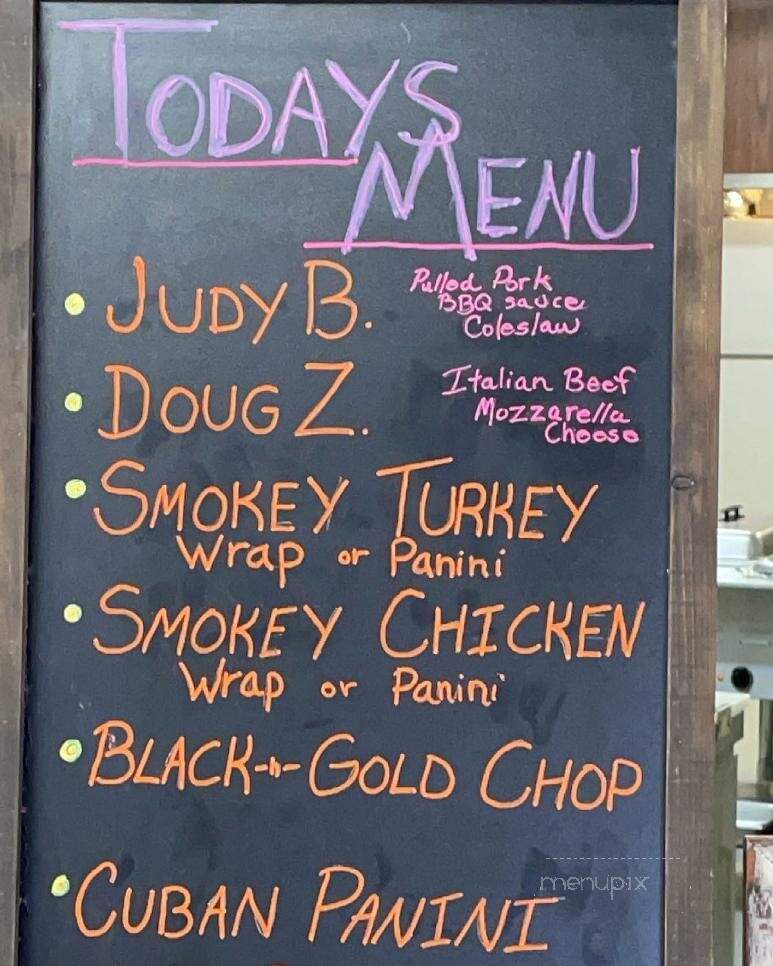 TODAYS
MENU
• JUDY B.
Pulled Pork
BBQ sauce
Coleslaw
• DOUG Z.
Italian Beef
Mozzarella
Cheese
• SMOKEY TURKEY
Wrap or Panini
• SMOKEY CHICKEN
Wrap or Panini
• BLACK-n-GOLD CHOP
• CUBAN PANINI
menupix